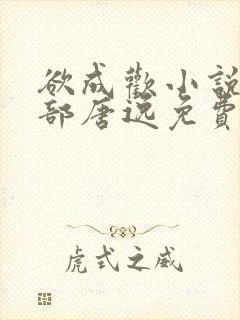 欲成歡小說
部唐逸免費
虎式之威